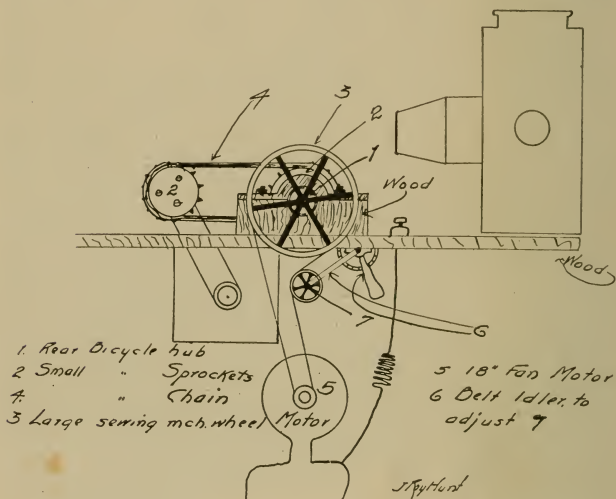 4
3
2
1
2
Wood
Wood
7
6
5
1. Rear Bicycle hub
2 Small " Sprockets
4. " Chain
3 Large sewing mch. wheel Motor
5 18" Fan Motor
6 Belt Idler. to
adjust 7
J Roy Hunt